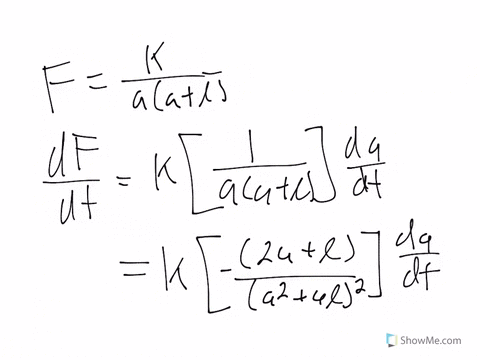 F = K / a(a+l)
dF/dt = K [ 1 / a(a+l) ] da/dt
= K [ -(2a+l) / (a²+al)² ] da/dt
ShowMe.com